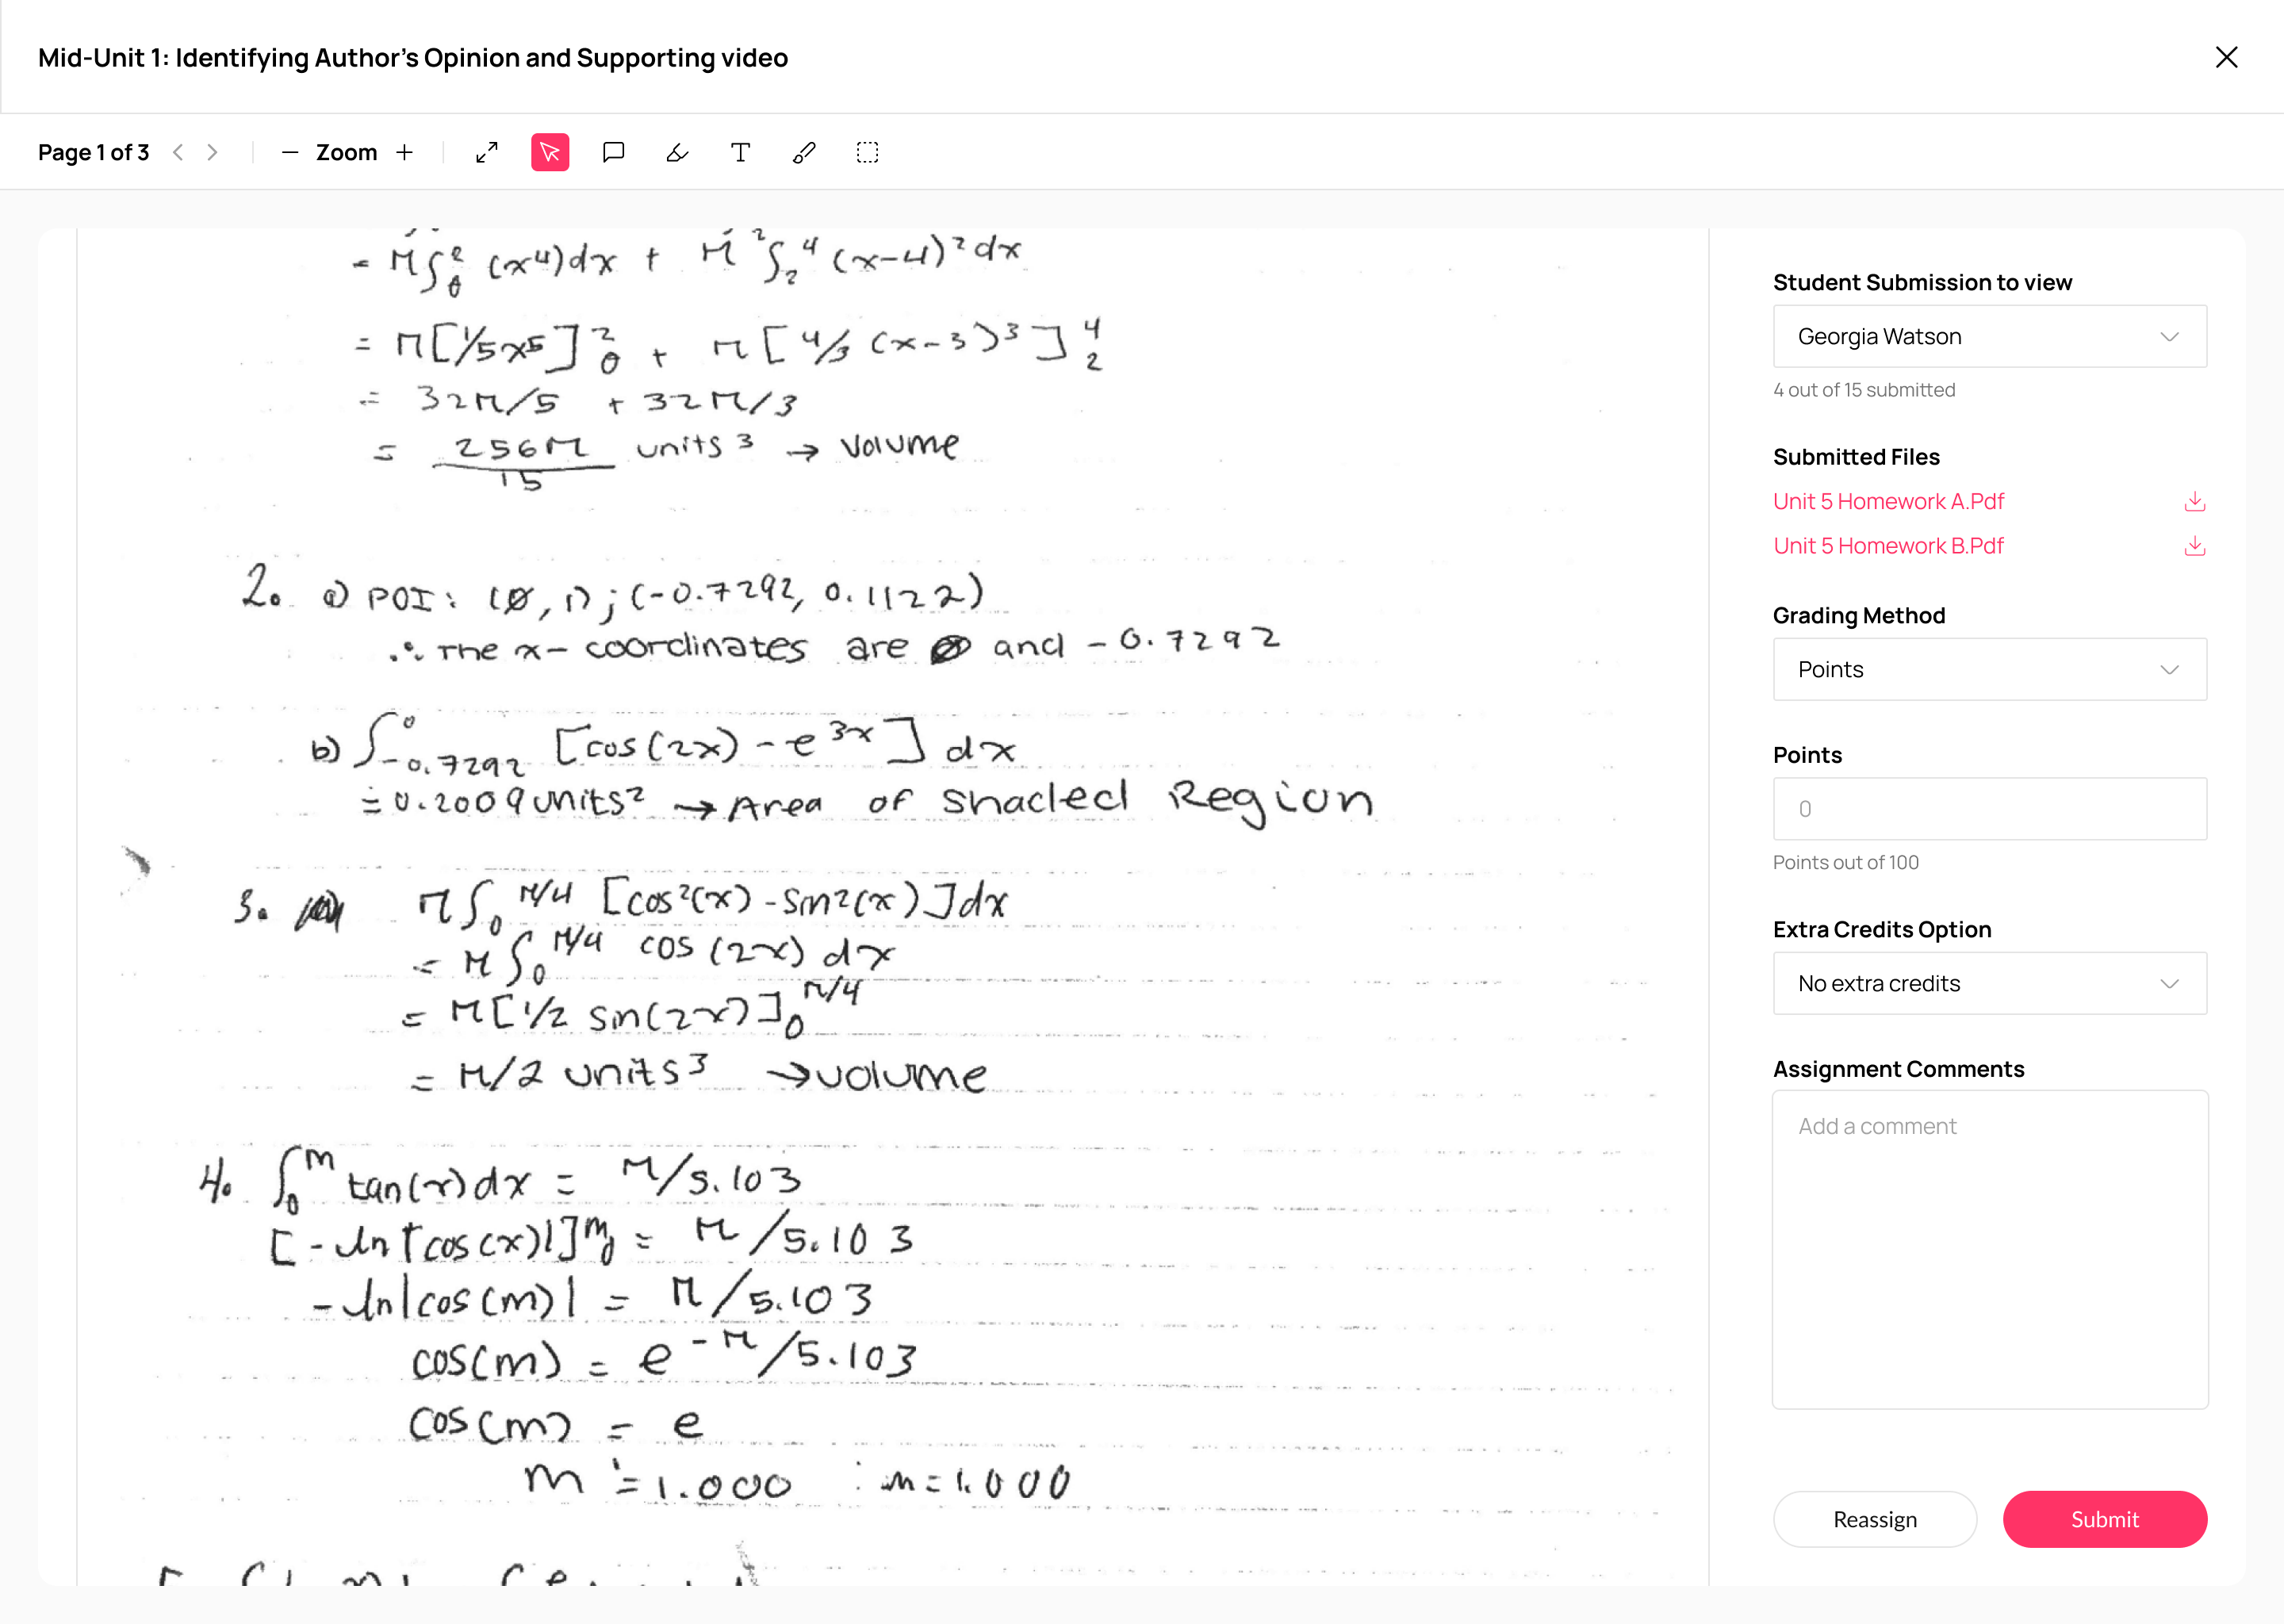 Mid-Unit 1: Identifying Author's Opinion and Supporting video
Page 1 of 3
Zoom
= π∫₀² (x⁴)dx + π ²∫₂⁴ (x-4)² dx
= π[1/5x⁵]₀² + π[4/3 (x-3)³]₂⁴
= 32π/5 + 32π/3
= 256π/15 units³ → volume
2. a) POI: (0, 1); (-0.7292, 0.1122)
∴ The x-coordinates are 0 and -0.7292
b) ∫₋₀.₇₂₉₂⁰ [cos(2x) - e³ˣ] dx
= 0.2009 units² → Area of Shaded Region
3. π∫₀^π/4 [cos²(x) - sin²(x)]dx
= π∫₀^π/4 cos(2x) dx
= π[1/2 sin(2x)]₀^π/4
= π/2 units³ → volume
4. ∫₀^m tan(x)dx = π/5.103
[-ln|cos(x)|]₀^m = π/5.103
-ln|cos(m)| = π/5.103
cos(m) = e^-π/5.103
cos(m) = e
m = 1.000 ∴ m = 1.000
Student Submission to view
Georgia Watson
4 out of 15 submitted
Submitted Files
Unit 5 Homework A.Pdf
Unit 5 Homework B.Pdf
Grading Method
Points
Points
0
Points out of 100
Extra Credits Option
No extra credits
Assignment Comments
Add a comment
Reassign
Submit